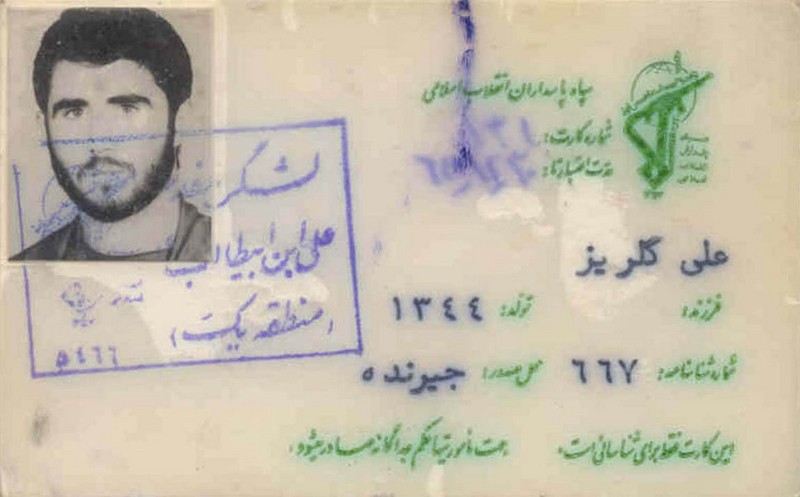 سپاه پاسداران انقلاب اسلامی
شماره کارت:
مدت اعتبار تا:
علی گلریز
فرزند:
تولد: ۱۳۴۴
شماره شناسنامه: ۶۶۷
محل صدور: جیرنده
این کارت فقط برای شناسائی است.
جهت مأموریتها حکم جداگانه صادر میشود.
لشگر
علی ابن ابیطالب
(منطقه یک)
۵۴۶۶